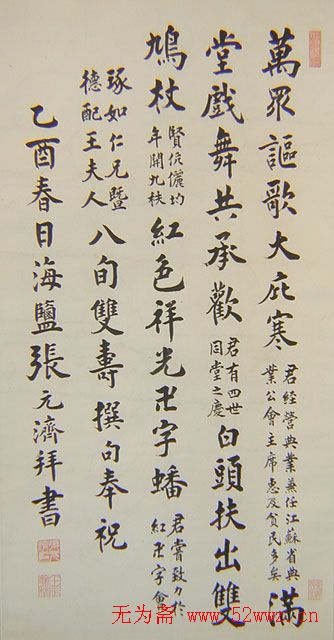 萬眾謳歌大庇寒君經營典業兼任江蘇省典業公會主席惠及貧民多矣滿
堂戲舞共承歡君有四世同堂之慶白頭扶出雙
鳩杖賢伉儷均年開九袟紅色祥光卍字蟠君嘗致力於紅卍字會
琢如仁兄暨德配王夫人八旬雙壽撰句奉祝
乙酉春日海鹽張元濟拜書
无为斋 www.52wwz.cn